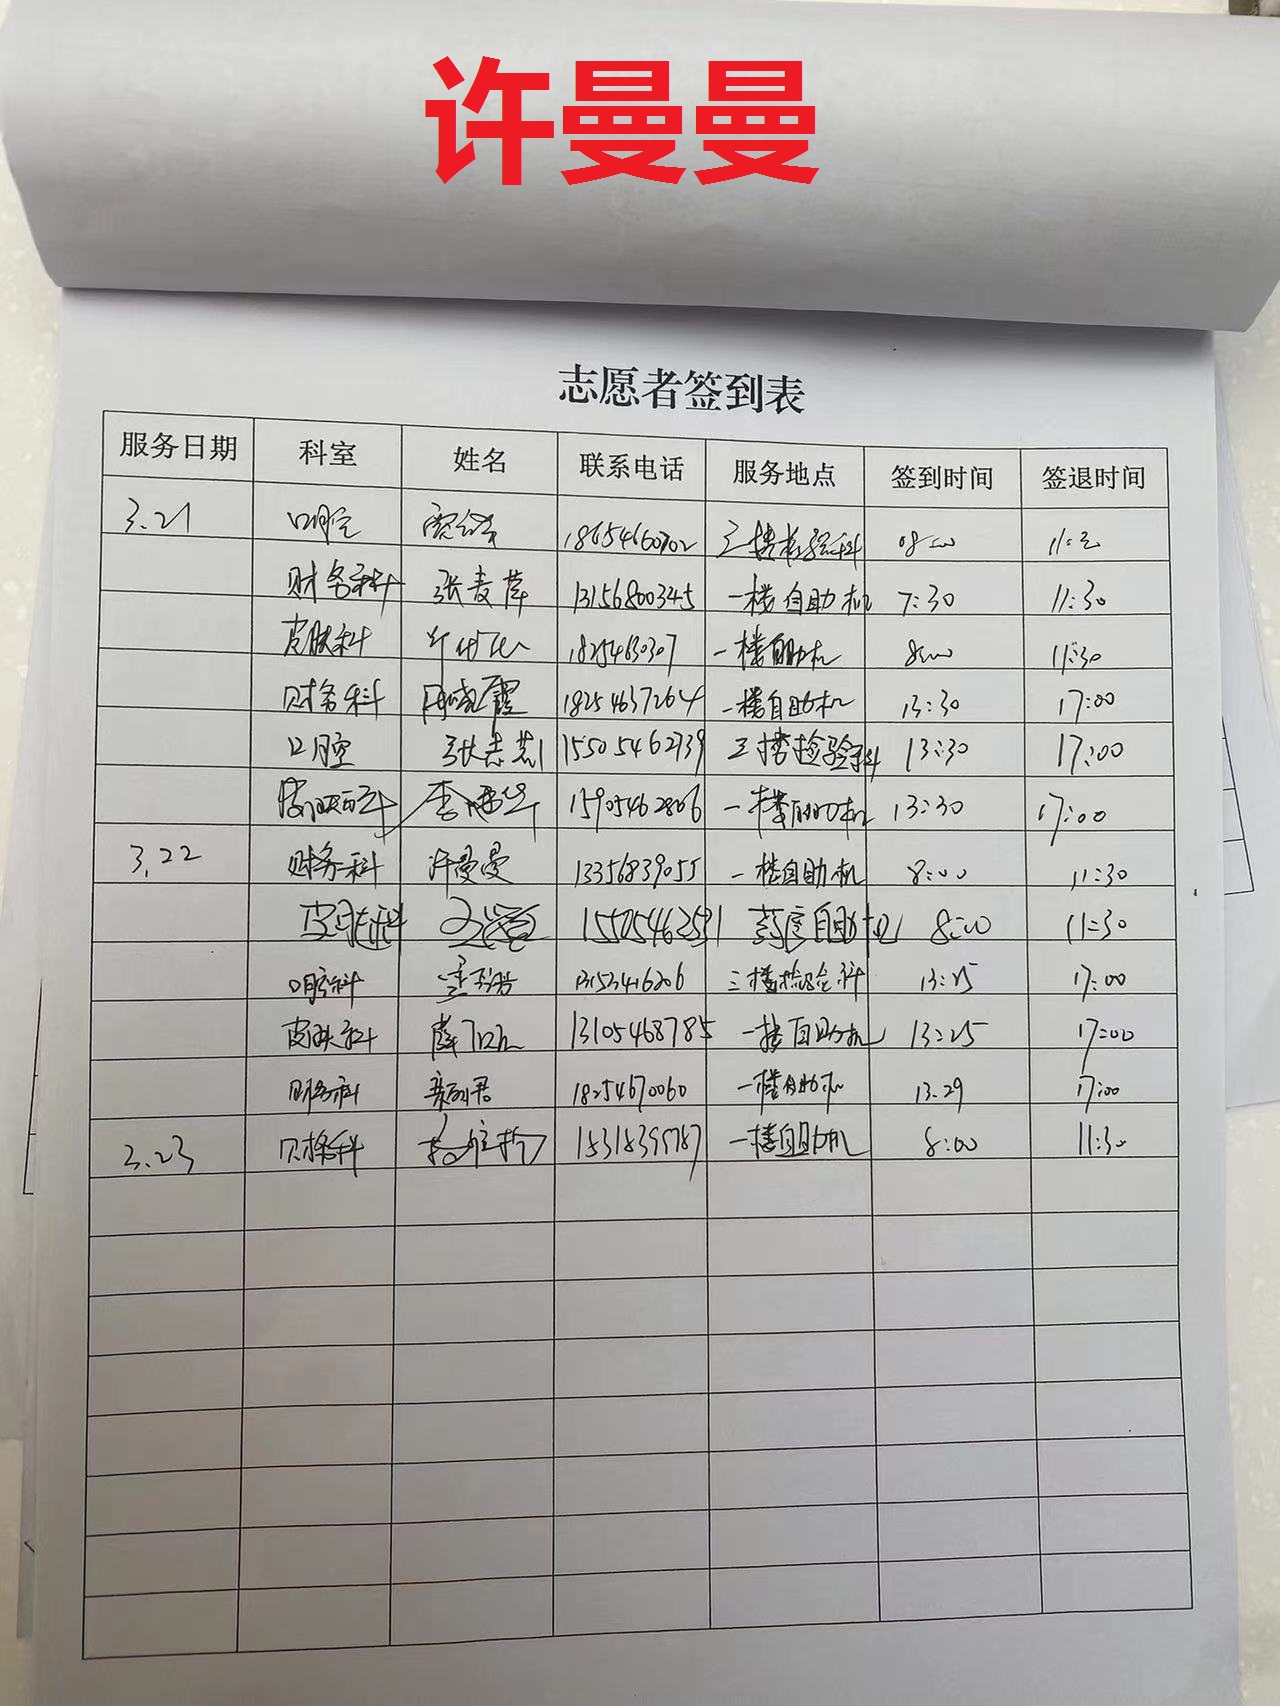 许曼曼
志愿者签到表
服务日期 科室 姓名 联系电话 服务地点 签到时间 签退时间
3.21 口腔 18654660702 三楼检验科 08:00
财务科 张麦萍 13156800345 一楼自助机 7:30 11:30
皮肤科 1825460307 一楼自助机 8:00 11:30
财务科 周晓霞 18254637264 一楼自助机 13:30 17:00
口腔 张志芳 15505462739 三楼检验科 13:30 17:00
皮肤科 李 华 15905462806 一楼自助机 13:30 17:00
3.22 财务科 许曼曼 13356839055 一楼自助机 8:00 11:30
皮肤科 自助机 8:00 11:30
口腔科 三楼检验科 13:25 17:00
皮肤科 薛 13105468785 一楼自助机 13:25 17:00
财务科 18254670060 一楼自助机 13:29 17:00
3.23 财务科 15318395787 一楼自助机 8:00 11:30